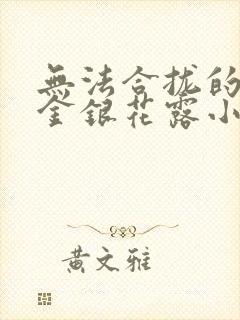 無法合拢的
金銀花露小
黄文雅